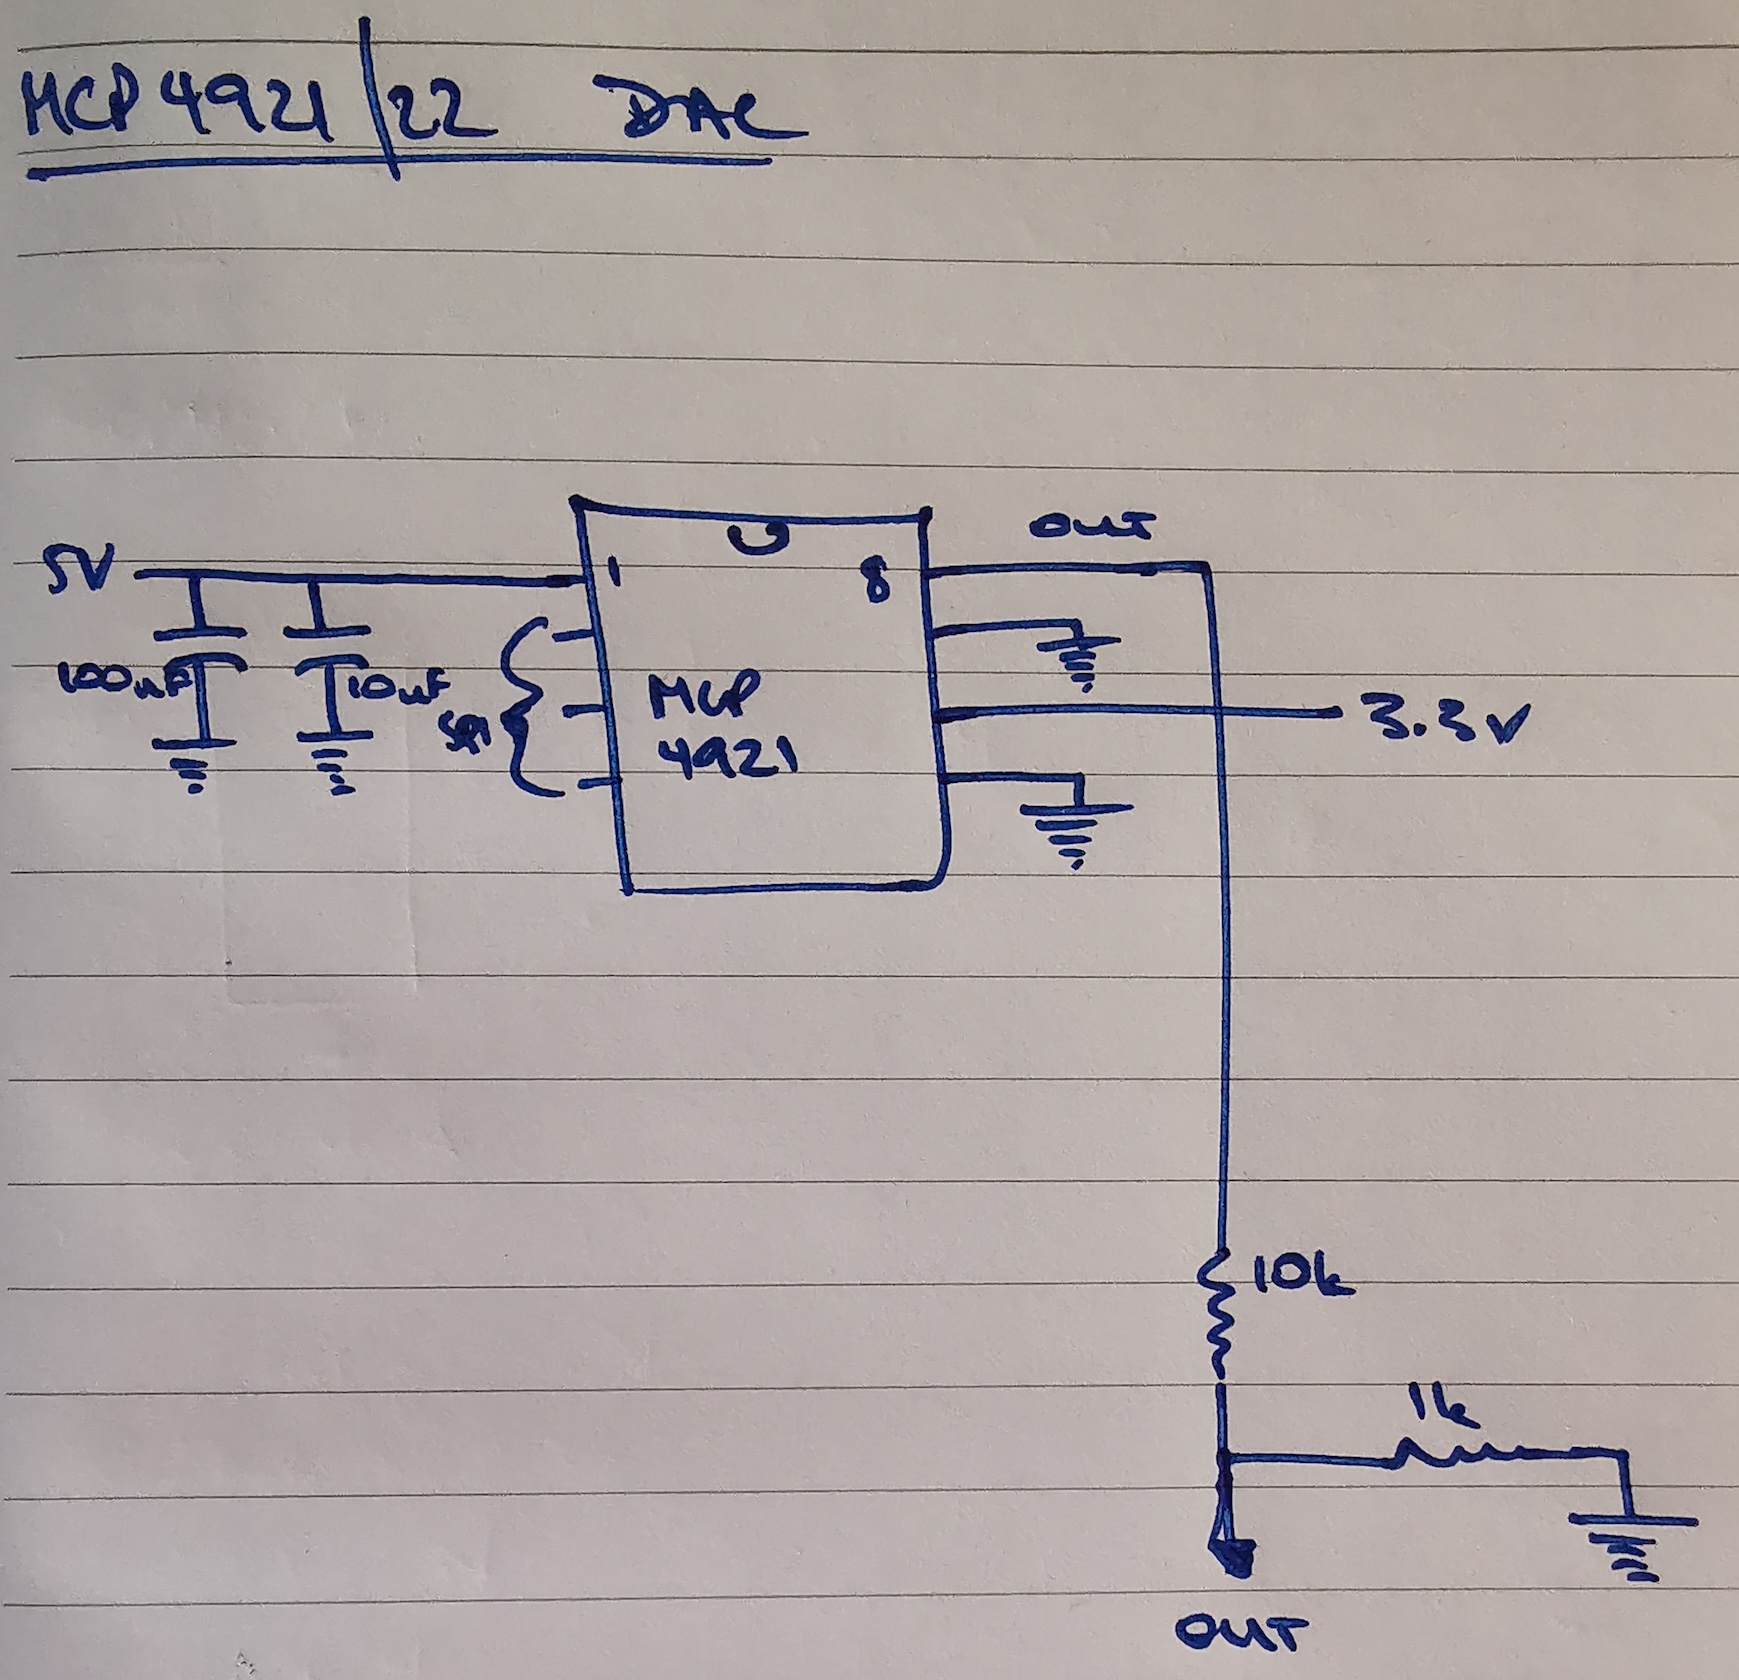 MCP 4921/22 DAC
OUT
5V
1
8
100nF
10uF
SPI
MCP
4921
3.3V
10k
1k
OUT